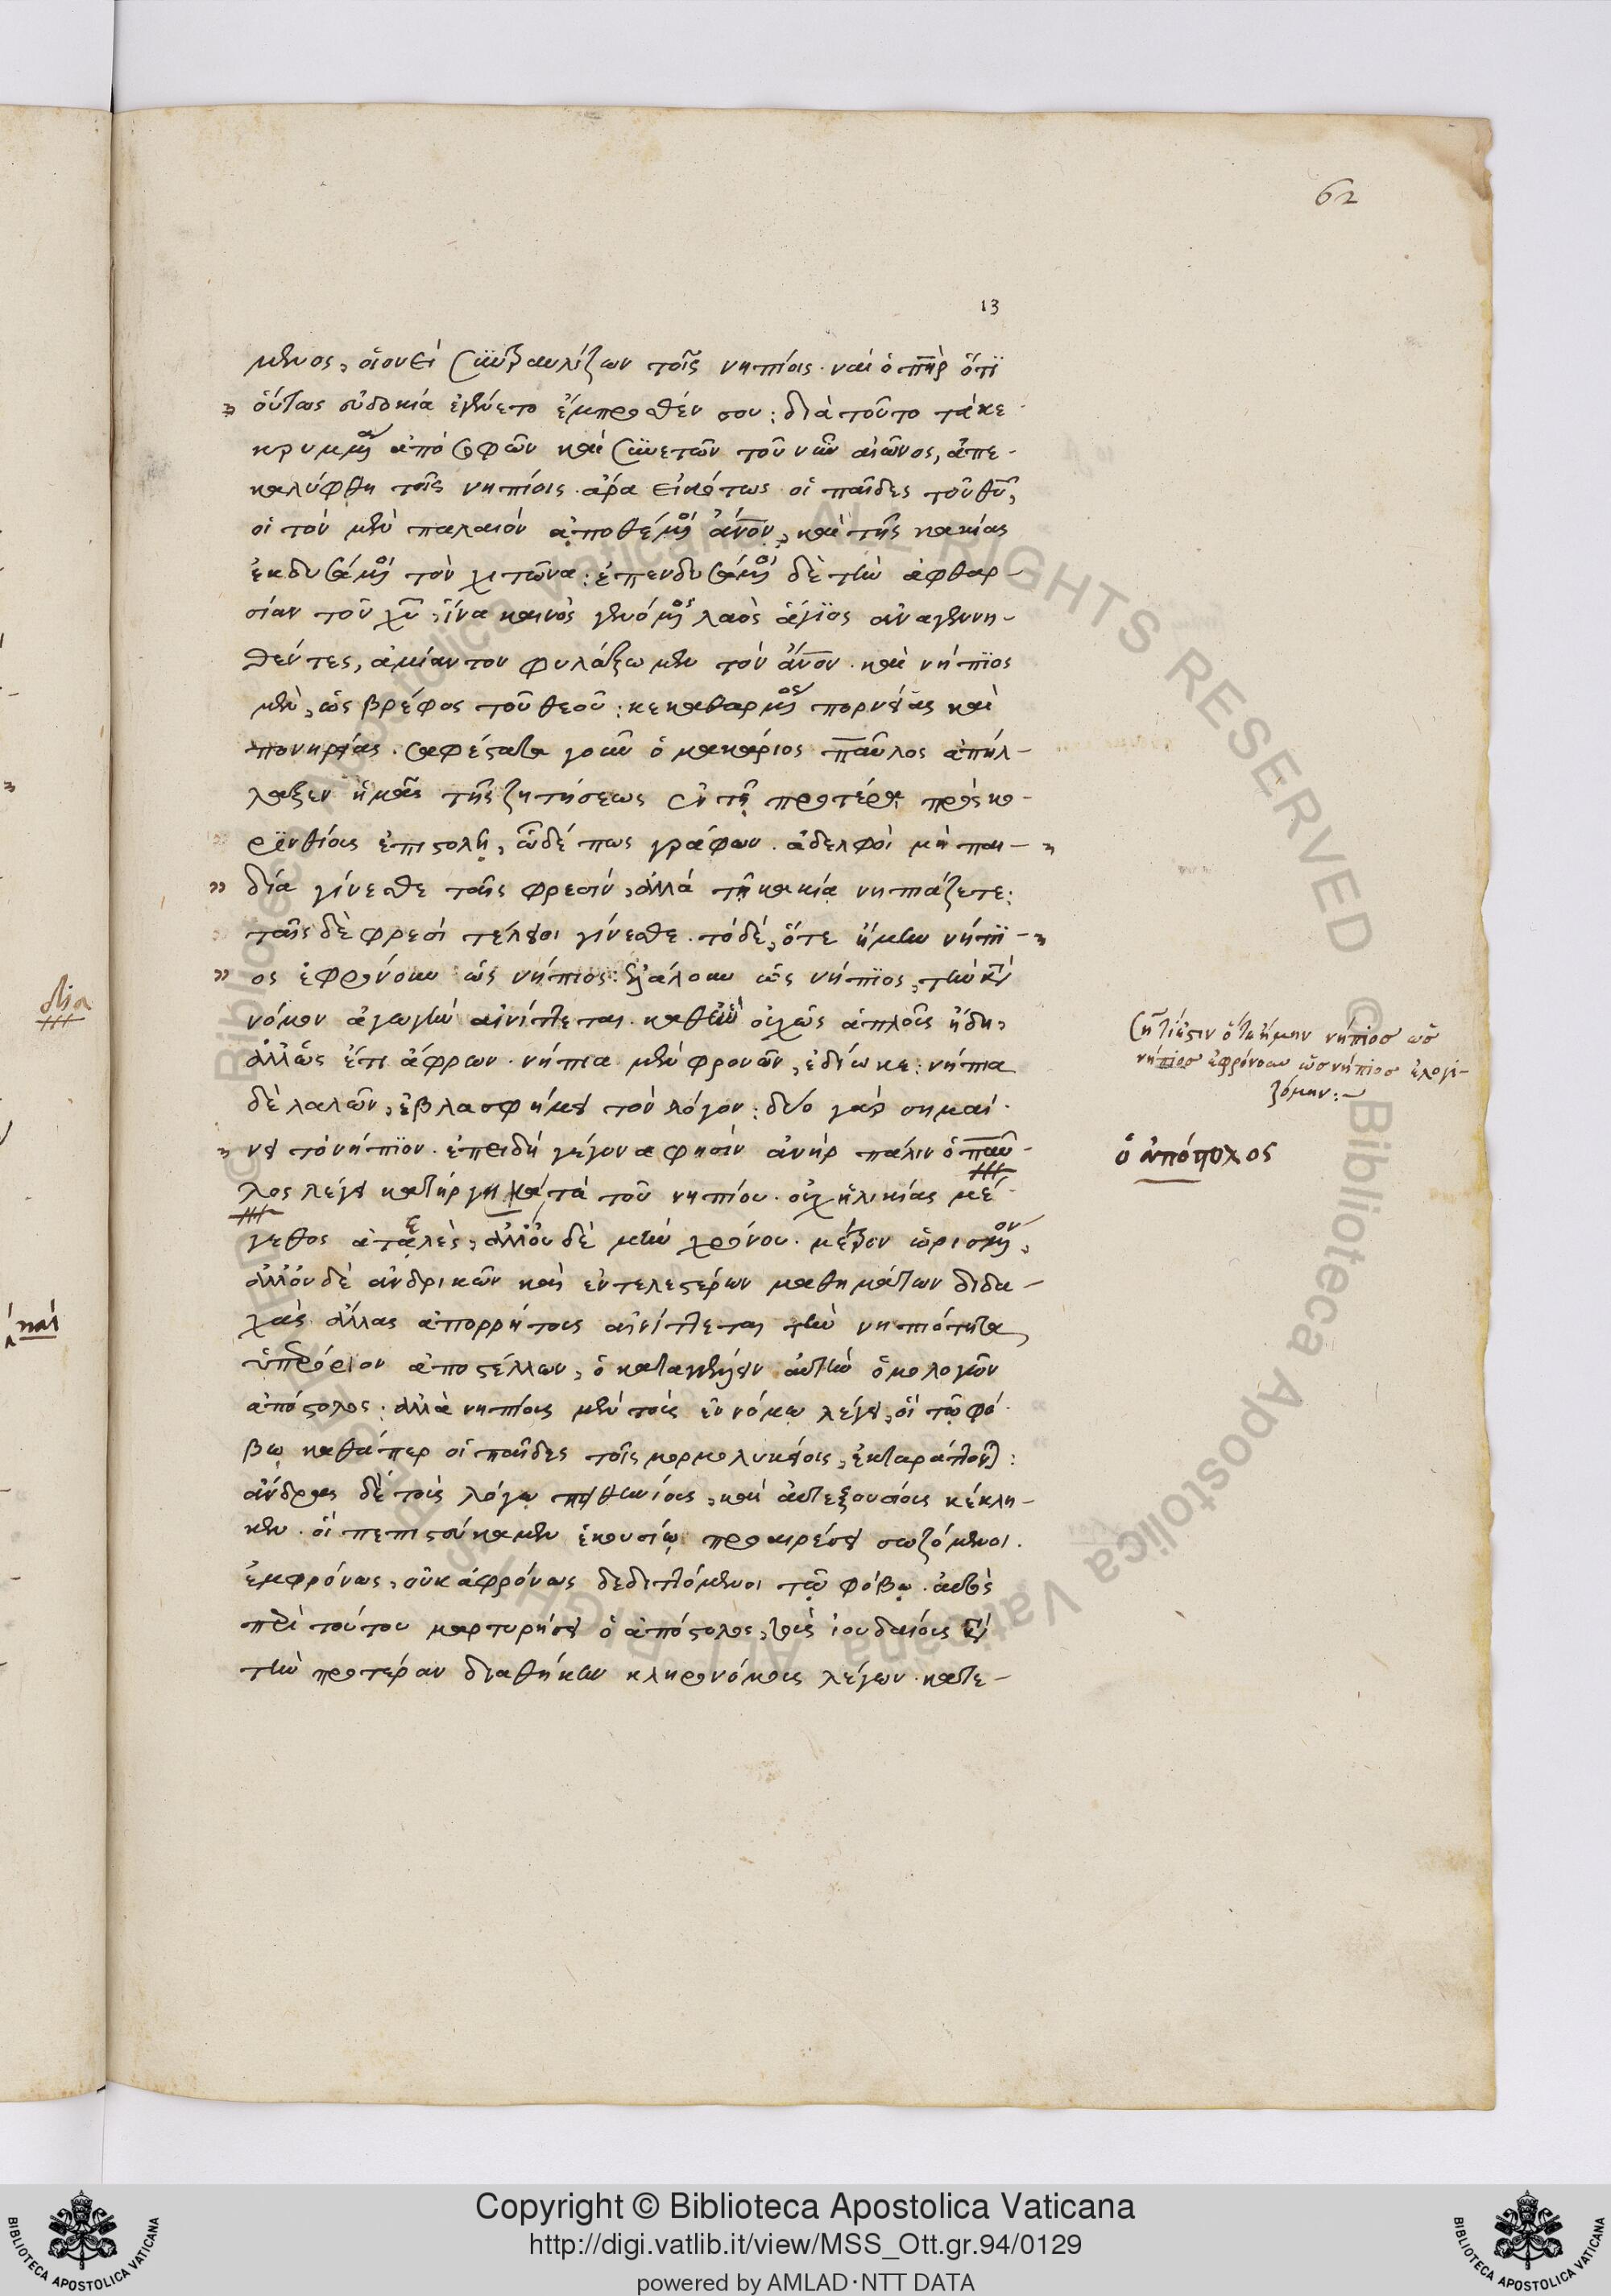 62
13
μενος, οἱονεὶ συνψαυλίζων τοῖς νηπίοις· ναὶ ὁ πη̅ρ ὅτι
οὕτως εὐδοκία ἐγένετο ἔμπροσθέν σου: διὰ τοῦτο τὰ κε-
κρυμμένα ἀπὸ σοφῶν καὶ συνετῶν τοῦ νῦν αἰῶνος, ἀπε-
καλύφθη τοῖς νηπίοις· ἄρα εἰκότως οἱ παῖδες τοῦ θυ̅,
οἱ τὸν μὲν παλαιὸν ἀποθέμενοι ἄν̅ον, καὶ τῆς κακίας
ἐκδυσάμενοι τὸν χιτῶνα: ἐπενδυσάμενοι δὲ τὴν ἀφθαρ-
σίαν τοῦ χυ̅, ἵνα καινὸς γενόμενος λαὸς ἅγιος ἀναγεννη-
θέντες, ἀμίαντον φυλάξωμεν τὸν ἄν̅ον. καὶ νήπιος
μὲν, ὡς βρέφος τοῦ θεοῦ: κεκαθαρμένος πορνείας καὶ
πονηρίας. σαφέστατα γοῦν ὁ μακάριος παῦλος ἀπήλ-
λαξεν ἡμᾶς τῆς ζητήσεως ἐν τῇ προτέρᾳ πρὸς κο-
ρινθίοις ἐπιστολῇ, ὧδέ πως γράφων. ἀδελφοὶ μὴ παι-
δία γίνεσθε ταῖς φρεσίν, ἀλλὰ τῇ κακίᾳ νηπιάζετε:
ταῖς δὲ φρεσὶ τέλειοι γίνεσθε. τὸ δέ, ὅτε ἤμην νήπι-
ος ἐφρόνουν ὡς νήπιος: ἐλάλουν ὡς νήπιος, τὴν κατὰ
νόμον ἀγωγὴν αἰνίττεται. καθ' ἣν οὐχ ὡς ἁπλοῦς ἤδη,
ἀλλ' ὡς ἔτι ἄφρων. νήπια μὲν φρονῶν, ἐδίωκε: νήπια
δὲ λαλῶν, ἐβλασφήμει τὸν λόγον: δύο γὰρ σημαί-
νει τὸ νήπιον. ἐπειδὴ γέγονα φησὶν ἀνὴρ πάλιν ὁ παῦ-
λος λέγει κατήργηκα τὰ τοῦ νηπίου. οὐχ ἡλικίας μέ-
γεθος ἀτελὲς, ἀλλ' οὐδὲ μὴν χρόνου. μέτρον ὡρισμένον,
ἀλλ' οὐδὲ ἀνδρικῶν καὶ ἐντελεστέρων μαθημάτων διδα-
χὰς ἄλλας ἀπορρήτους αἰνίττεται τὴν νηπιότητα
ὑπερόριον ἀποστέλλων, ὁ καταγγέλλειν αὐτὴν ὁμολογῶν
ἀπόστολος: ἀλλὰ νηπίους μὲν τοὺς ἐν νόμῳ λέγει, οἳ τῷ φό-
βῳ καθάπερ οἱ παῖδες τοῖς μορμολυκείοις, ἐκταράττονται:
ἄνδρας δὲ τοὺς λόγῳ πειθηνίους, καὶ αὐτεξουσίους κέκλη-
κεν. οἳ πεπιστεύκαμεν ἑκουσίῳ προαιρέσει σωζόμενοι.
ἐμφρόνως, οὐκ ἀφρόνως δεδιττόμενοι τῷ φόβῳ. αὐτὸς
περὶ τούτου μαρτυρήσει ὁ ἀπόστολος, τοὺς ἰουδαίους κατὰ
τὴν προτέραν διαθήκην κληρονόμους λέγων. κατε-
ὅτε ἤμην νήπιος ὡς
νήπιος ἐφρόνουν ὡς νήπιος ἐλογι-
ζόμην:
ὁ ἀπόστολος
δια
καὶ
Copyright © Biblioteca Apostolica Vaticana
http://digi.vatlib.it/view/MSS_Ott.gr.94/0129
powered by AMLAD·NTT DATA
BIBLIOTECA APOSTOLICA VATICANA
BIBLIOTECA APOSTOLICA VATICANA